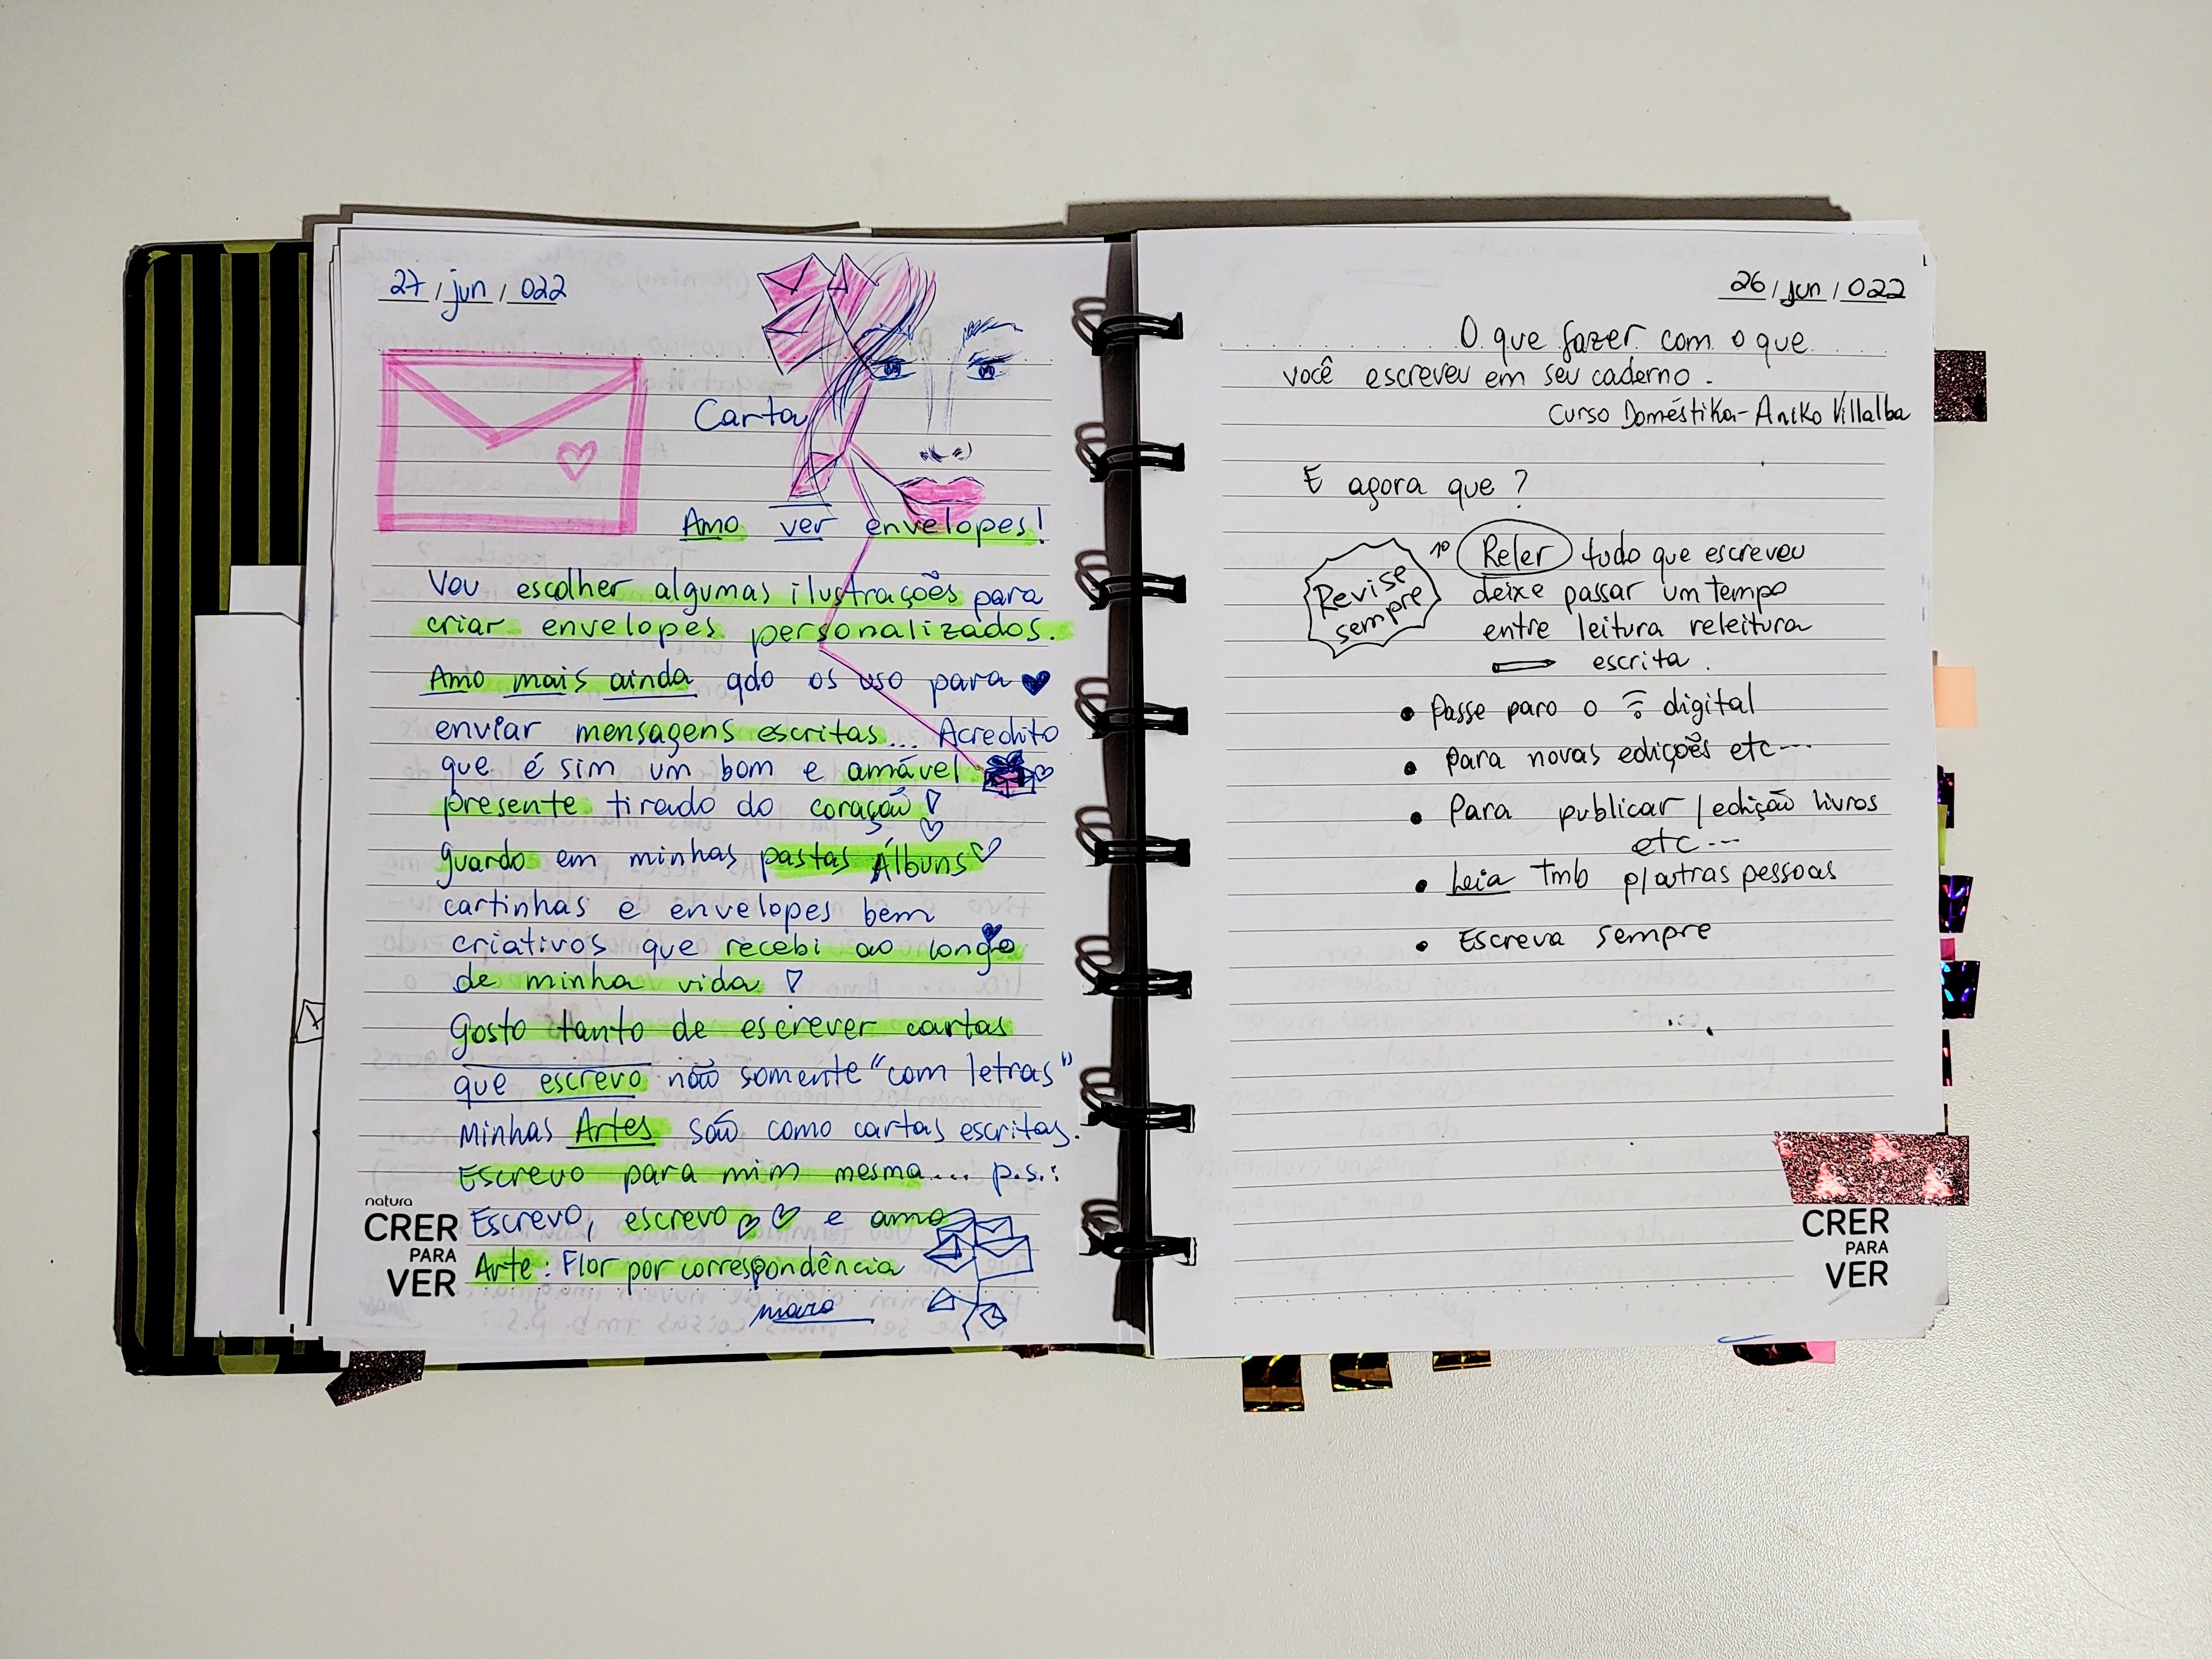 27 / jun / 022
Carta
Amo ver envelopes!
Vou escolher algumas ilustrações para
criar envelopes personalizados.
Amo mais ainda qdo os uso para
enviar mensagens escritas... Acredito
que é sim um bom e amável
presente tirado do coração!
guardo em minhas pastas Álbuns
cartinhas e envelopes bem
criativos que recebi ao longo
de minha vida!
Gosto tanto de escrever cartas
que escrevo não somente "com letras"
Minhas Artes são como cartas escritas.
Escrevo para mim mesma... p.s.:
Escrevo, escrevo e amo
Arte: Flor por correspondência
mara
natura
CRER
PARA
VER
26 / jun / 022
O que fazer com o que
você escreveu em seu caderno.
Curso Doméstika - Aniko Villalba
E agora que?
Revise
sempre
1º Reler tudo que escreveu
deixe passar um tempo
entre leitura releitura
escrita.
• Passe para o digital
• Para novas edições etc...
• Para publicar / edição livros
etc...
• Leia Tmb p/outras pessoas
• Escreva sempre
CRER
PARA
VER